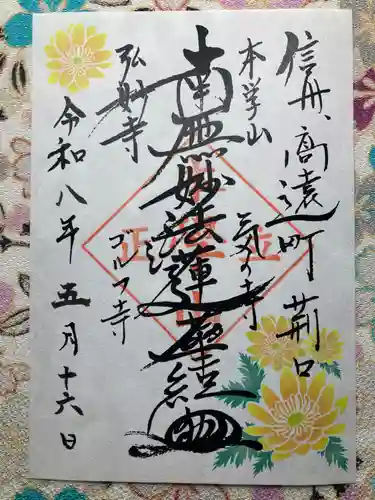 信州、高遠町荊口
本学山
気の寺
南無妙法蓮華経
弘妙寺
ゴルフ寺
令和八年五月十六日